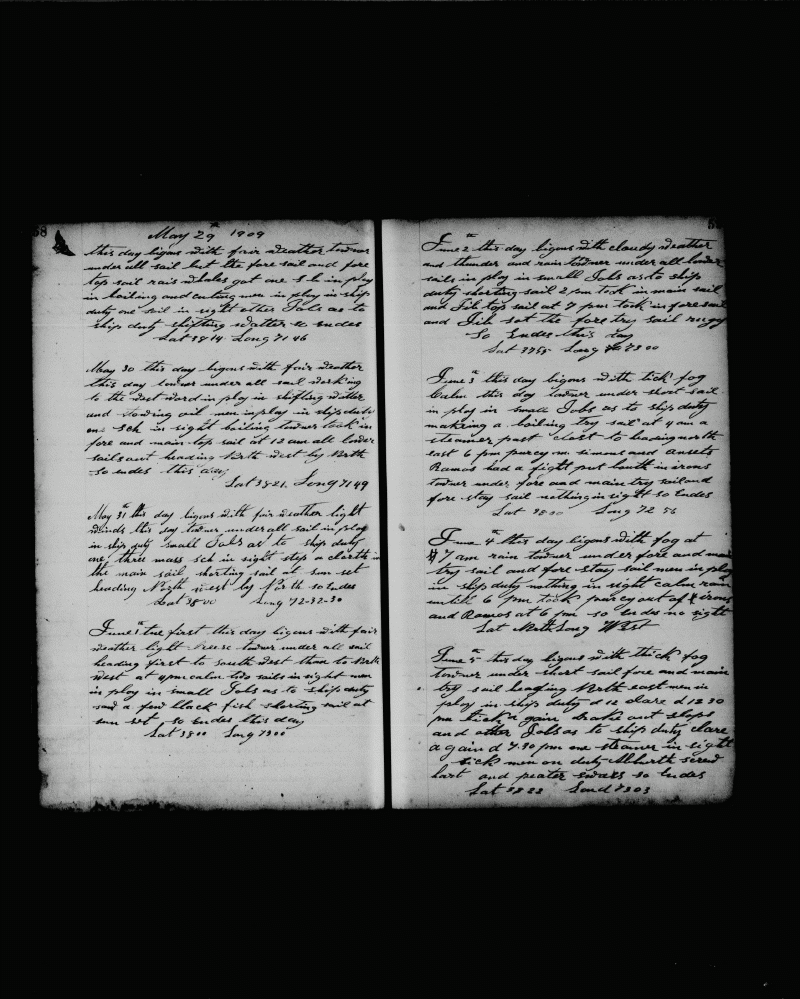 58
May 29th 1909
this day bigins with fair weather towner
under all sail but the fore sail and fore
top sail rais whales got one S b in play
in boiling and cuting men in play in ship
duty one sail in sight other Jobs as to
ship duty shifting watter so endes
Lat 38 14 Long 71 46
May 30 this day bigins with fair weather
this day towner under all sail working
to the west ward in play in shifting watter
and stowing oil men in play in ship duty
one Sch in sight boiling towner took in
fore and main top sail at 12 am all lower
sails out heading North west by North
so endes this day
Lat 38 21 Long 71 49
May 31th this day bigins with fair weather light
winds this day towner under all sail in play
in ship duty small Jobs as to ship duty
one three mass Sch in sight step a clorth in
the main sail shorting sail at sun set
heading North west by North so Endes
Lat 38 00 Long 72-32-30
June 1th the first this day bigins with fair
weather light breese towner under all sail
heading first to south west than to North
west at 4 pm calm two sails in sight men
in play in small Jobs as to ship duty
sad a few black fish shorting sail at
sun set so endes this day
Lat 38 00 Long 73 00
June 2th this day bigins with cloudy weather
and thunder and rain towner under all lower
sails in play in small Jobs as to ship
duty shorting sail 2 pm took in main sail
and Jib top sail at 7 pm took in fore sail
and Jib set the fore try sail
So Endes this day
Lat 37 55 Long 73 00
June 3th this day bigins with tick fog
Calm this day towner under short sail
in play in small Jobs as to ship duty
making a boiling try sail at 4 am a
steamer past clost to heading north
east 6 pm purcy m. simons and ansets
Ramos had a fight put bouth in irons
towner under fore and main try sail and
fore stay sail nothing in sight so Endes
Lat 38 00 Long 72 56
June 4th this day bigins with fog at
7 am rain towner under fore and main
try sail and fore stay sail men in play
in ship duty nothing in sight calm rain
untill 6 pm took purcy out of irons
and Ramos at 6 pm so Endes no sight
Lat North Long West
June 5th this day bigins with thick fog
towner under short sail fore and main
try sail heading North east men in
play in ship duty d 12 clare d 12 30
pm tick a gain brake out slops
and other Jobs as to ship duty clare
a gain d 7.30 pm one steamer in sight
sick men on duty Alburth screw
hart and peater ewars so Endes
Lat 38 22 Lond 73 03